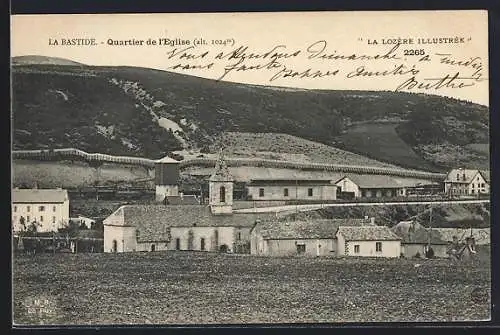 LA BASTIDE. - Quartier de l'Eglise (alt. 1024m)
" LA LOZÈRE ILLUSTRÉE "
2265
Vous attendons Dimanche, à midi
sans faute
Bonnes amitiés
Berthe
M. B.